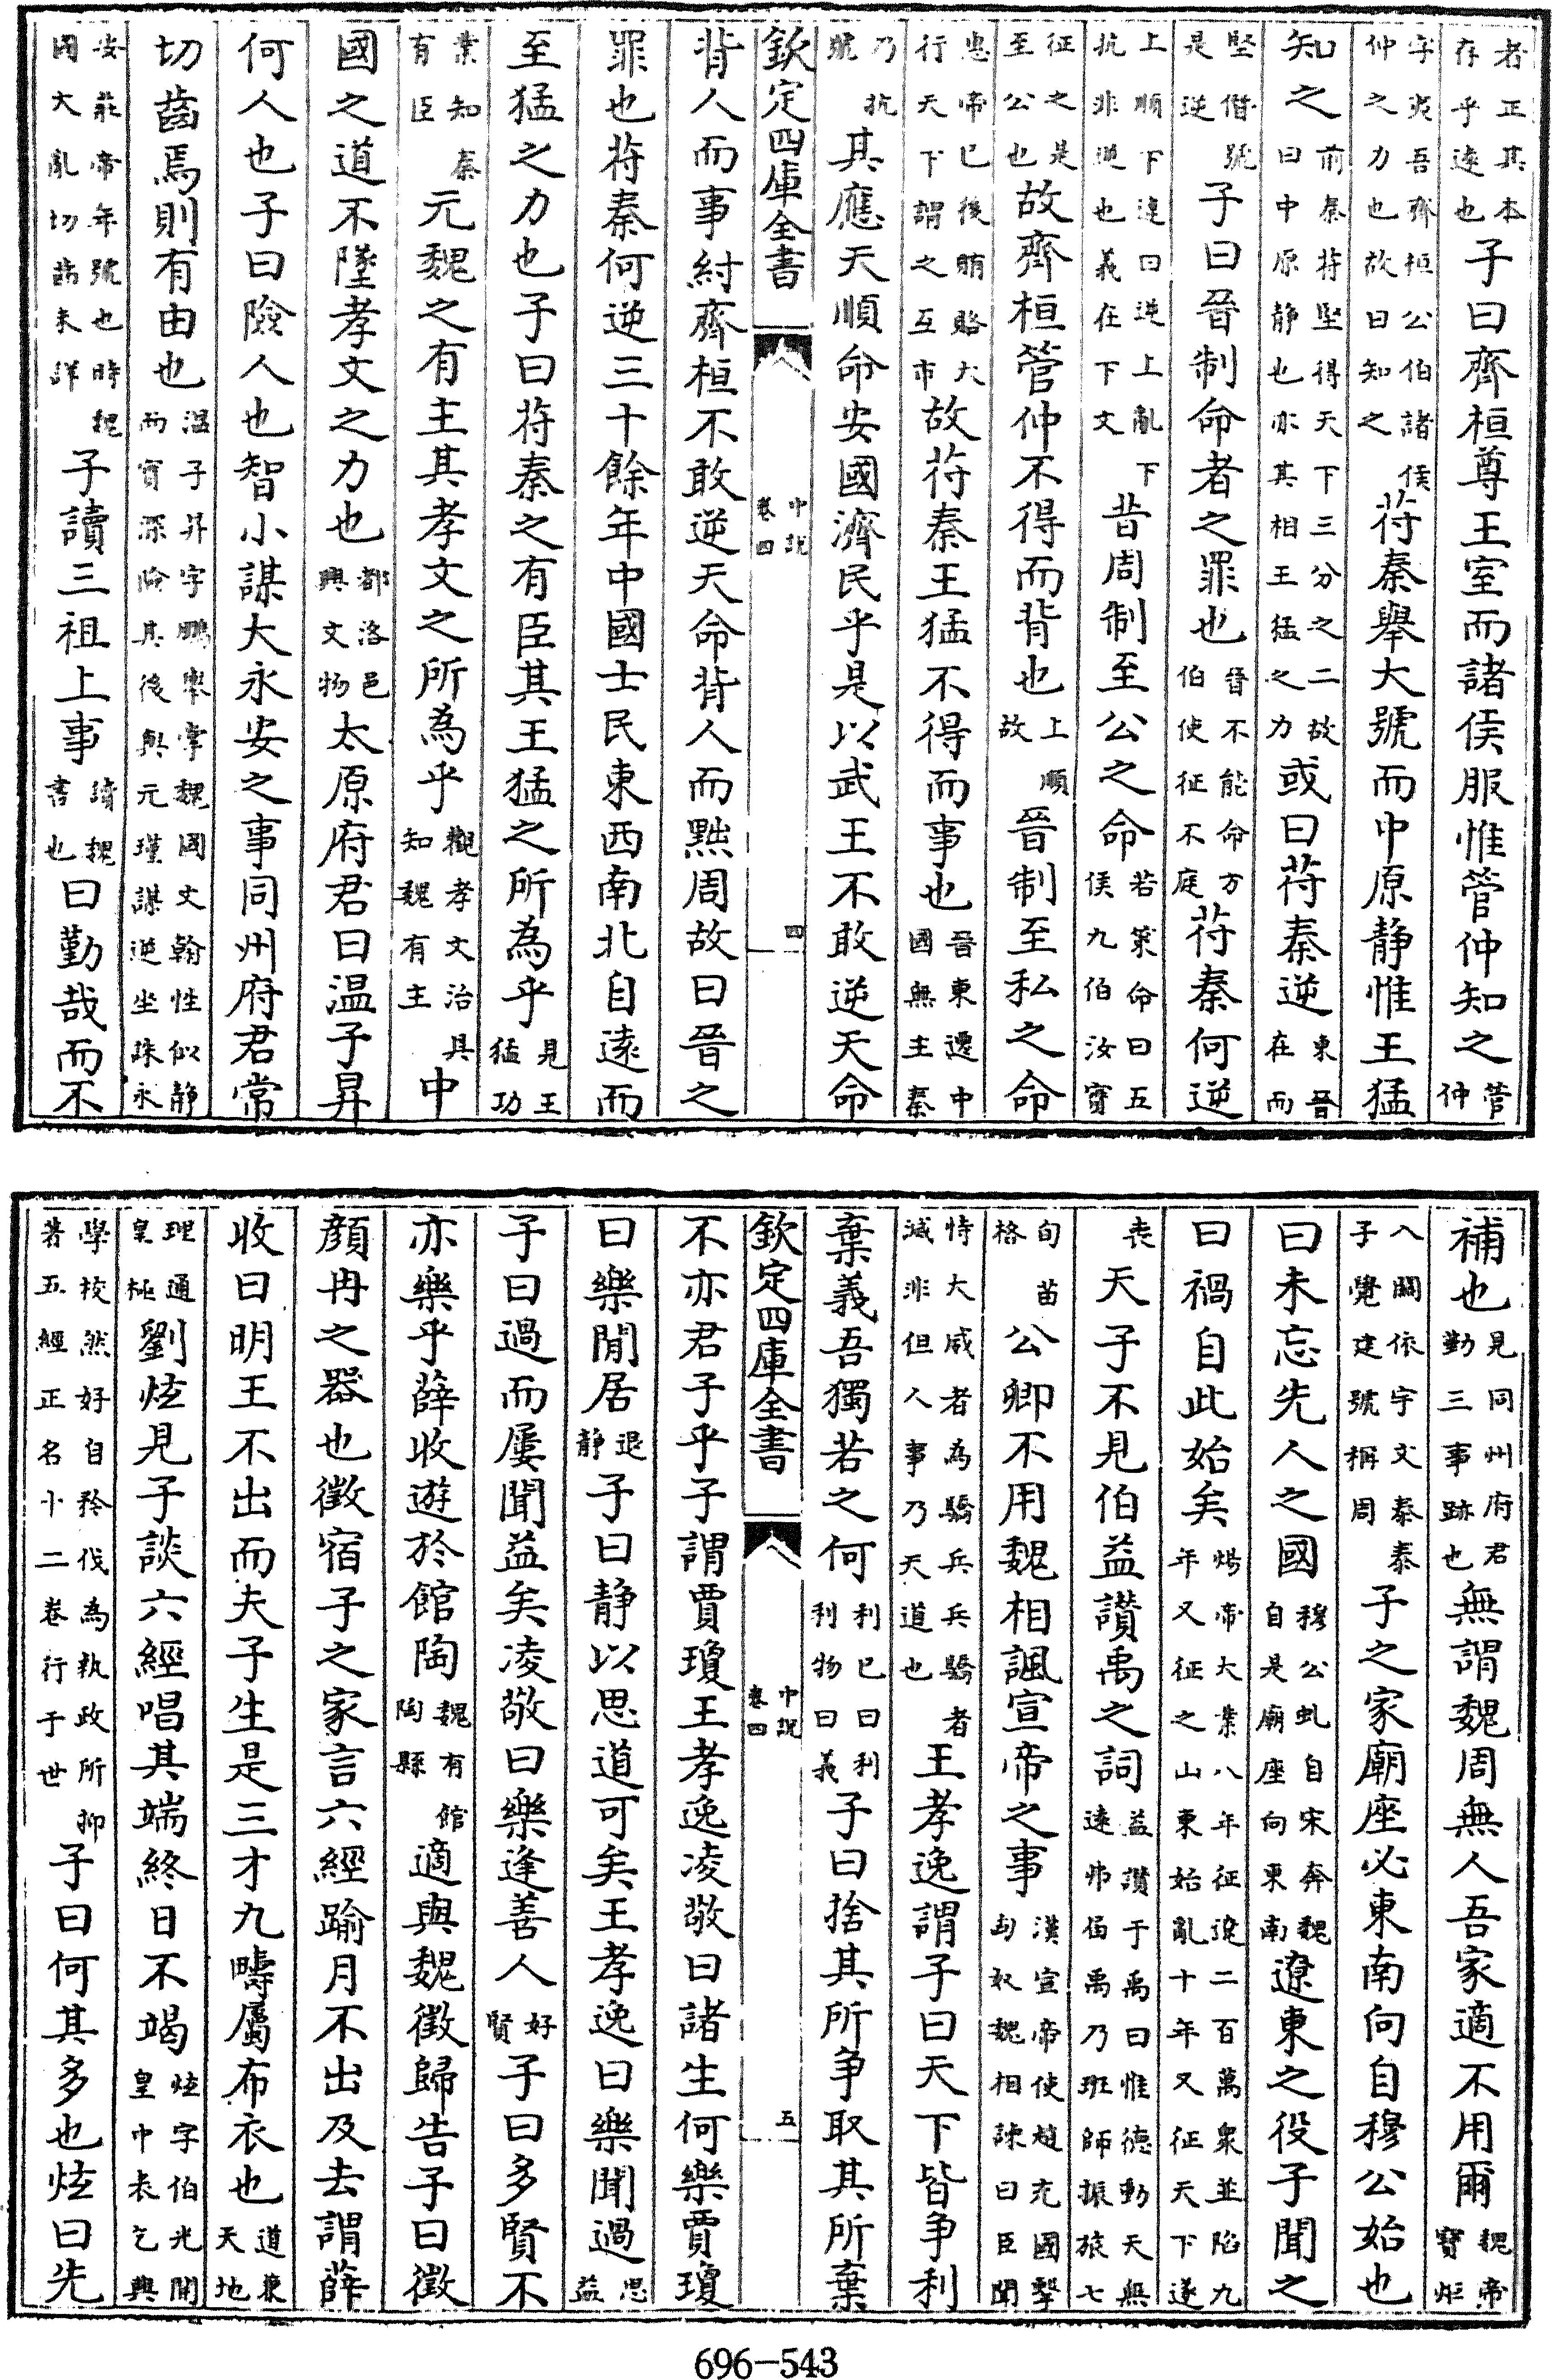 者正其本存乎遠也子曰齊桓尊王室而諸侯服惟管仲知之管仲
字夷吾齊桓公伯諸侯仲之力也故曰知之苻秦舉大號而中原静惟王猛
知之前秦苻堅得天下三分之二故曰中原静也亦其相王猛之力或曰苻秦逆東晉在而
堅僭號是逆子曰晉制命者之罪也晉不能命方伯使征不庭苻秦何逆
上順下違曰逆上亂下抗非逆也義在下文昔周制至公之命若策命曰五侯九伯汝實
征之是至公也故齊桓管仲不得而背也上順故晉制至私之命
惠帝已後賄賂大行天下謂之互市故苻秦王猛不得而事也晉東遷中國無主秦
乃抗號其應天順命安國濟民乎是以武王不敢逆天命
欽定四庫全書 中說 卷四 四
背人而事紂齊桓不敢逆天命背人而黜周故曰晉之
罪也苻秦何逆三十餘年中國士民東西南北自遠而
至猛之力也子曰苻秦之有臣其王猛之所為乎見王猛功
業知秦有臣元魏之有主其孝文之所為乎觀孝文治具知魏有主中
國之道不墜孝文之力也都洛邑興文物太原府君曰温子昇
何人也子曰險人也智小謀大永安之事同州府君常
切齒焉則有由也温子昇字鵬舉掌魏國文翰性似静而實深險其後與元瑾謀逆坐誅永
安莊帝年號也時魏國大亂切齒未詳子讀三祖上事讀魏書也曰勤哉而不
補也見同州府君勤三事跡也無謂魏周無人吾家適不用爾魏帝寶炬
入關依宇文泰泰子覺建號稱周子之家廟座必東南向自穆公始也
曰未忘先人之國穆公虬自宋奔魏自是廟座向東南遼東之役子聞之
曰禍自此始矣煬帝大業八年征遼二百萬衆並陷九年又征之山東始亂十年又征天下遂
喪天子不見伯益讃禹之詞益讃于禹曰惟德動天無遠弗届禹乃班師振旅七
旬苗格公卿不用魏相諷宣帝之事漢宣帝使趙充國擊匈奴魏相諫曰臣聞
恃大威者為驕兵兵驕者滅非但人事乃天道也王孝逸謂子曰天下皆争利
棄義吾獨若之何利已曰利利物曰義子曰捨其所争取其所棄
欽定四庫全書 中說 卷四 五
不亦君子乎子謂賈瓊王孝逸凌敬曰諸生何樂賈瓊
曰樂閒居退静子曰静以思道可矣王孝逸曰樂聞過思益
子曰過而屢聞益矣凌敬曰樂逢善人好賢子曰多賢不
亦樂乎薛收遊於館陶魏有館陶縣適與魏徵歸告子曰徵
顔冉之器也徵宿子之家言六經踰月不出及去謂薛
收曰明王不出而夫子生是三才九疇屬布衣也道兼天地
理通皇極劉炫見子談六經唱其端終日不竭炫字伯光開皇中表乞興
學校然好自矜伐為執政所抑著五經正名十二卷行于世子曰何其多也炫曰先
696-543